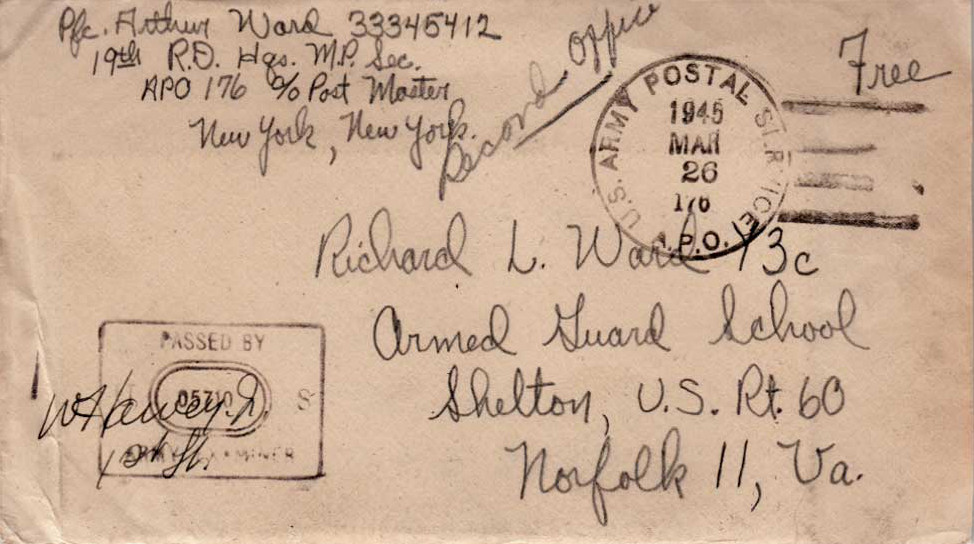 Pfc. Arthur Ward 33345412
19th R.D. Hqs. M.P. Sec.
APO 176 c/o Post Master
New York, New York.
Second Office
Free
U.S. ARMY POSTAL SERVICE
1945
MAR
26
176
A.P.O.
Richard L. Ward
Armed Guard School
Shelton, U.S. Rt. 60
Norfolk 11, Va.
PASSED BY
S
ARMY EXAMINER
1st Lt.